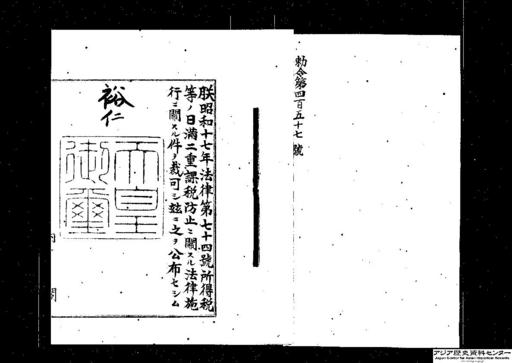 勅令第四百五十七號
朕昭和十七年法律第七十四號所得税
等ノ日滿二重課税防止ニ關スル法律施
行ニ關スル件ヲ裁可シ玆ニ之ヲ公布セシム
裕仁
天皇
御璽
内閣
アジア歴史資料センター
Japan Center for Asian Historical Records